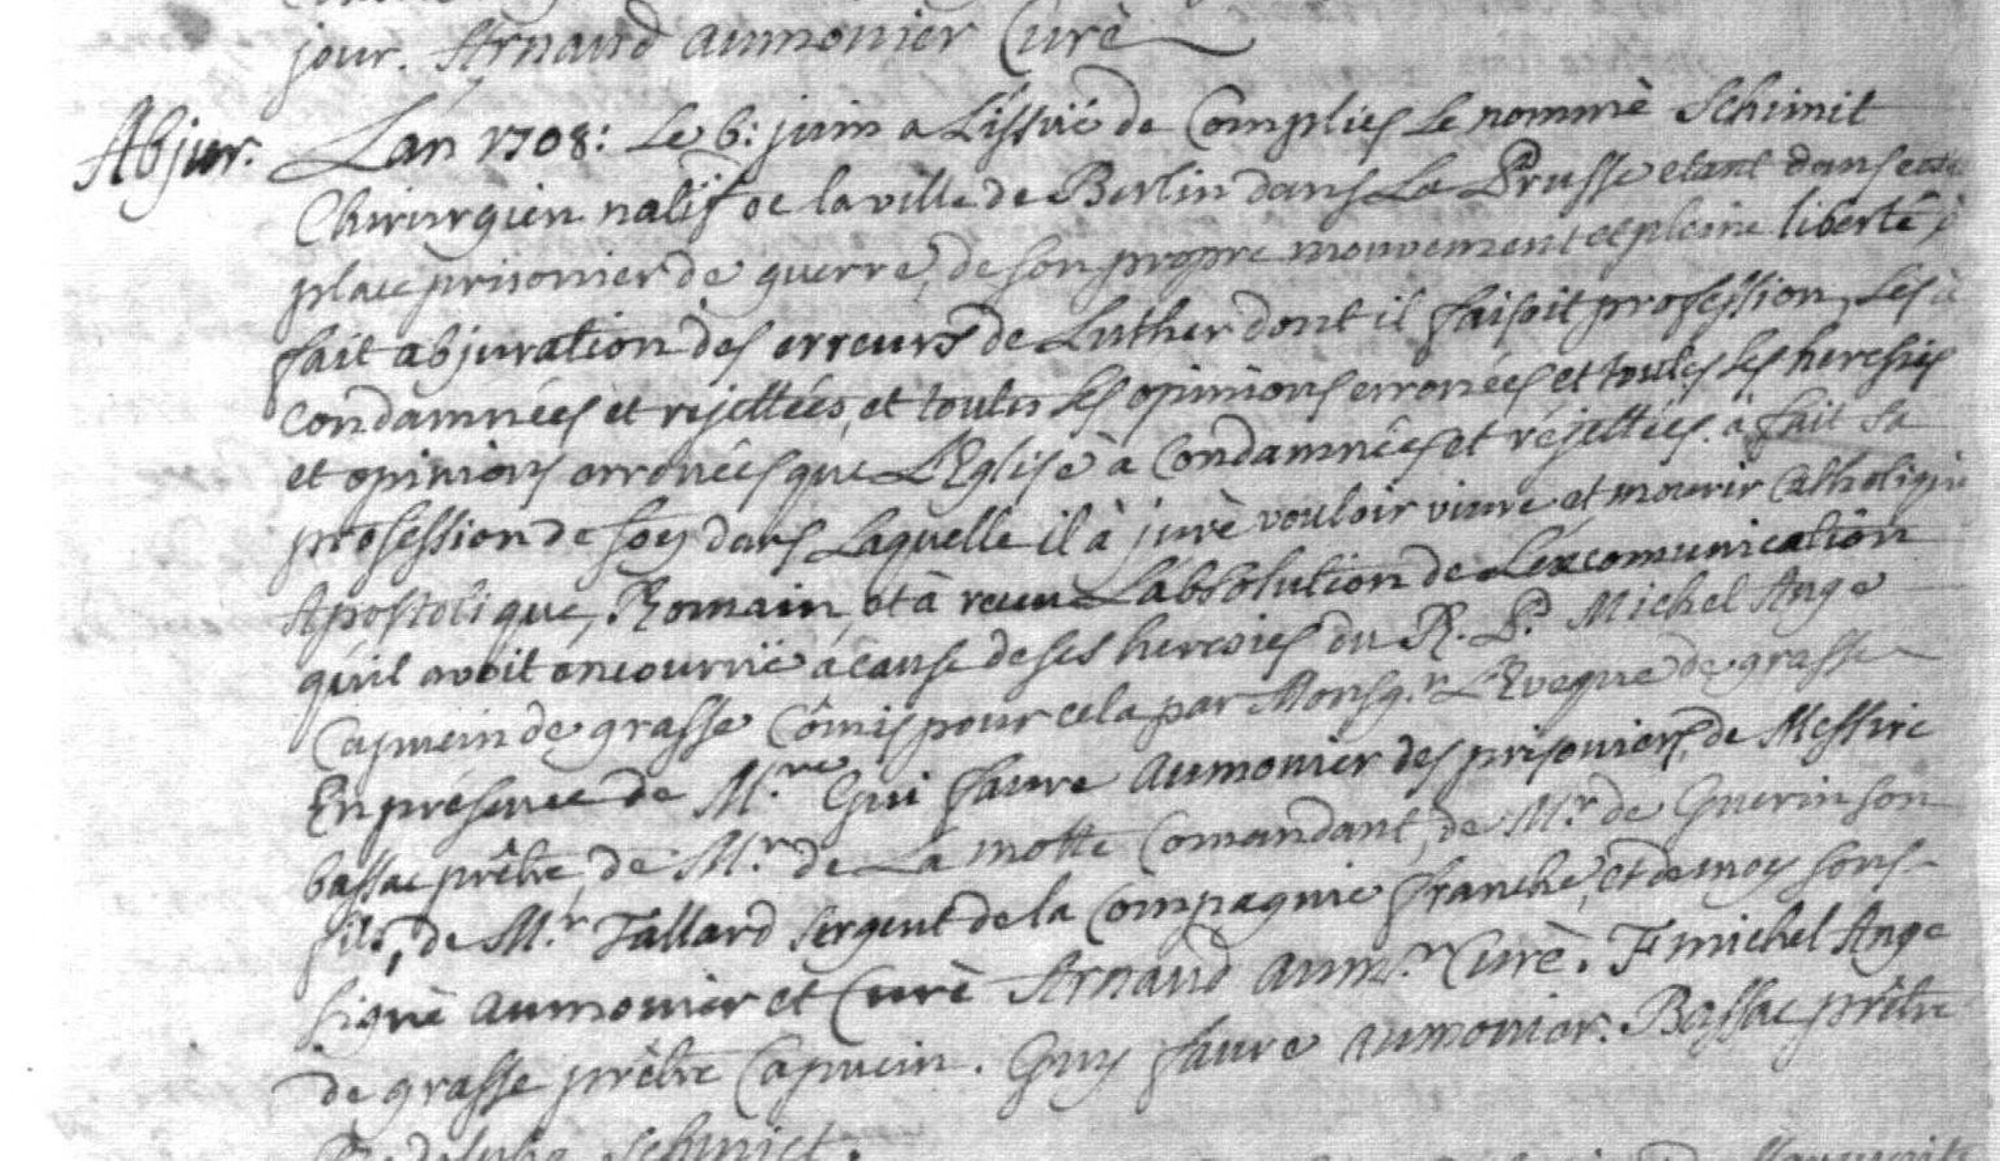 jour. Arnaud aumonier Curè
Abjur. Lan 1708: Le 6: juin a L'issuë de Complies Le nommè Schimit
Chirurgien natif de la ville de Berlin dans La Prusse etant dans cette
place prisonier de guerre, de son propre mouvement et pleine liberté à
fait abjuration des erreurs de Luther dont il faisoit profession, Les à
condamnées et rejettées, et toutes les opinions erronées et toutes les heresies
et opinions erronées que L'Eglise à Condamnées et réjettées. à fait sa
profession de foy dans Laquelle il à jurè vouloir vivre et mourir Catholique
Apostolique, Romain, et à receu L'absolution de L'excomunication
qu'il avoit encourrüe à cause de ses heresies du R. P. Michel Ange
Capucin de grasse Cômis pour cela par Monsg.r L'Eveque de grasse
En présence de M.re Gui faure aumonier des prisoniers, de Messire
bassac prêtre, de M.r de La motte Comandant, de M.r de Guerin son
fils, de M.r Tallard sergent de la Compagnie franche, et de moy sous-
signè aumonier et Curè Arnaud aum.r Curè. F michel Ange
de grasse prêtre Capucin. Guy faure aumonier. Bassac prêtre
Schmict.